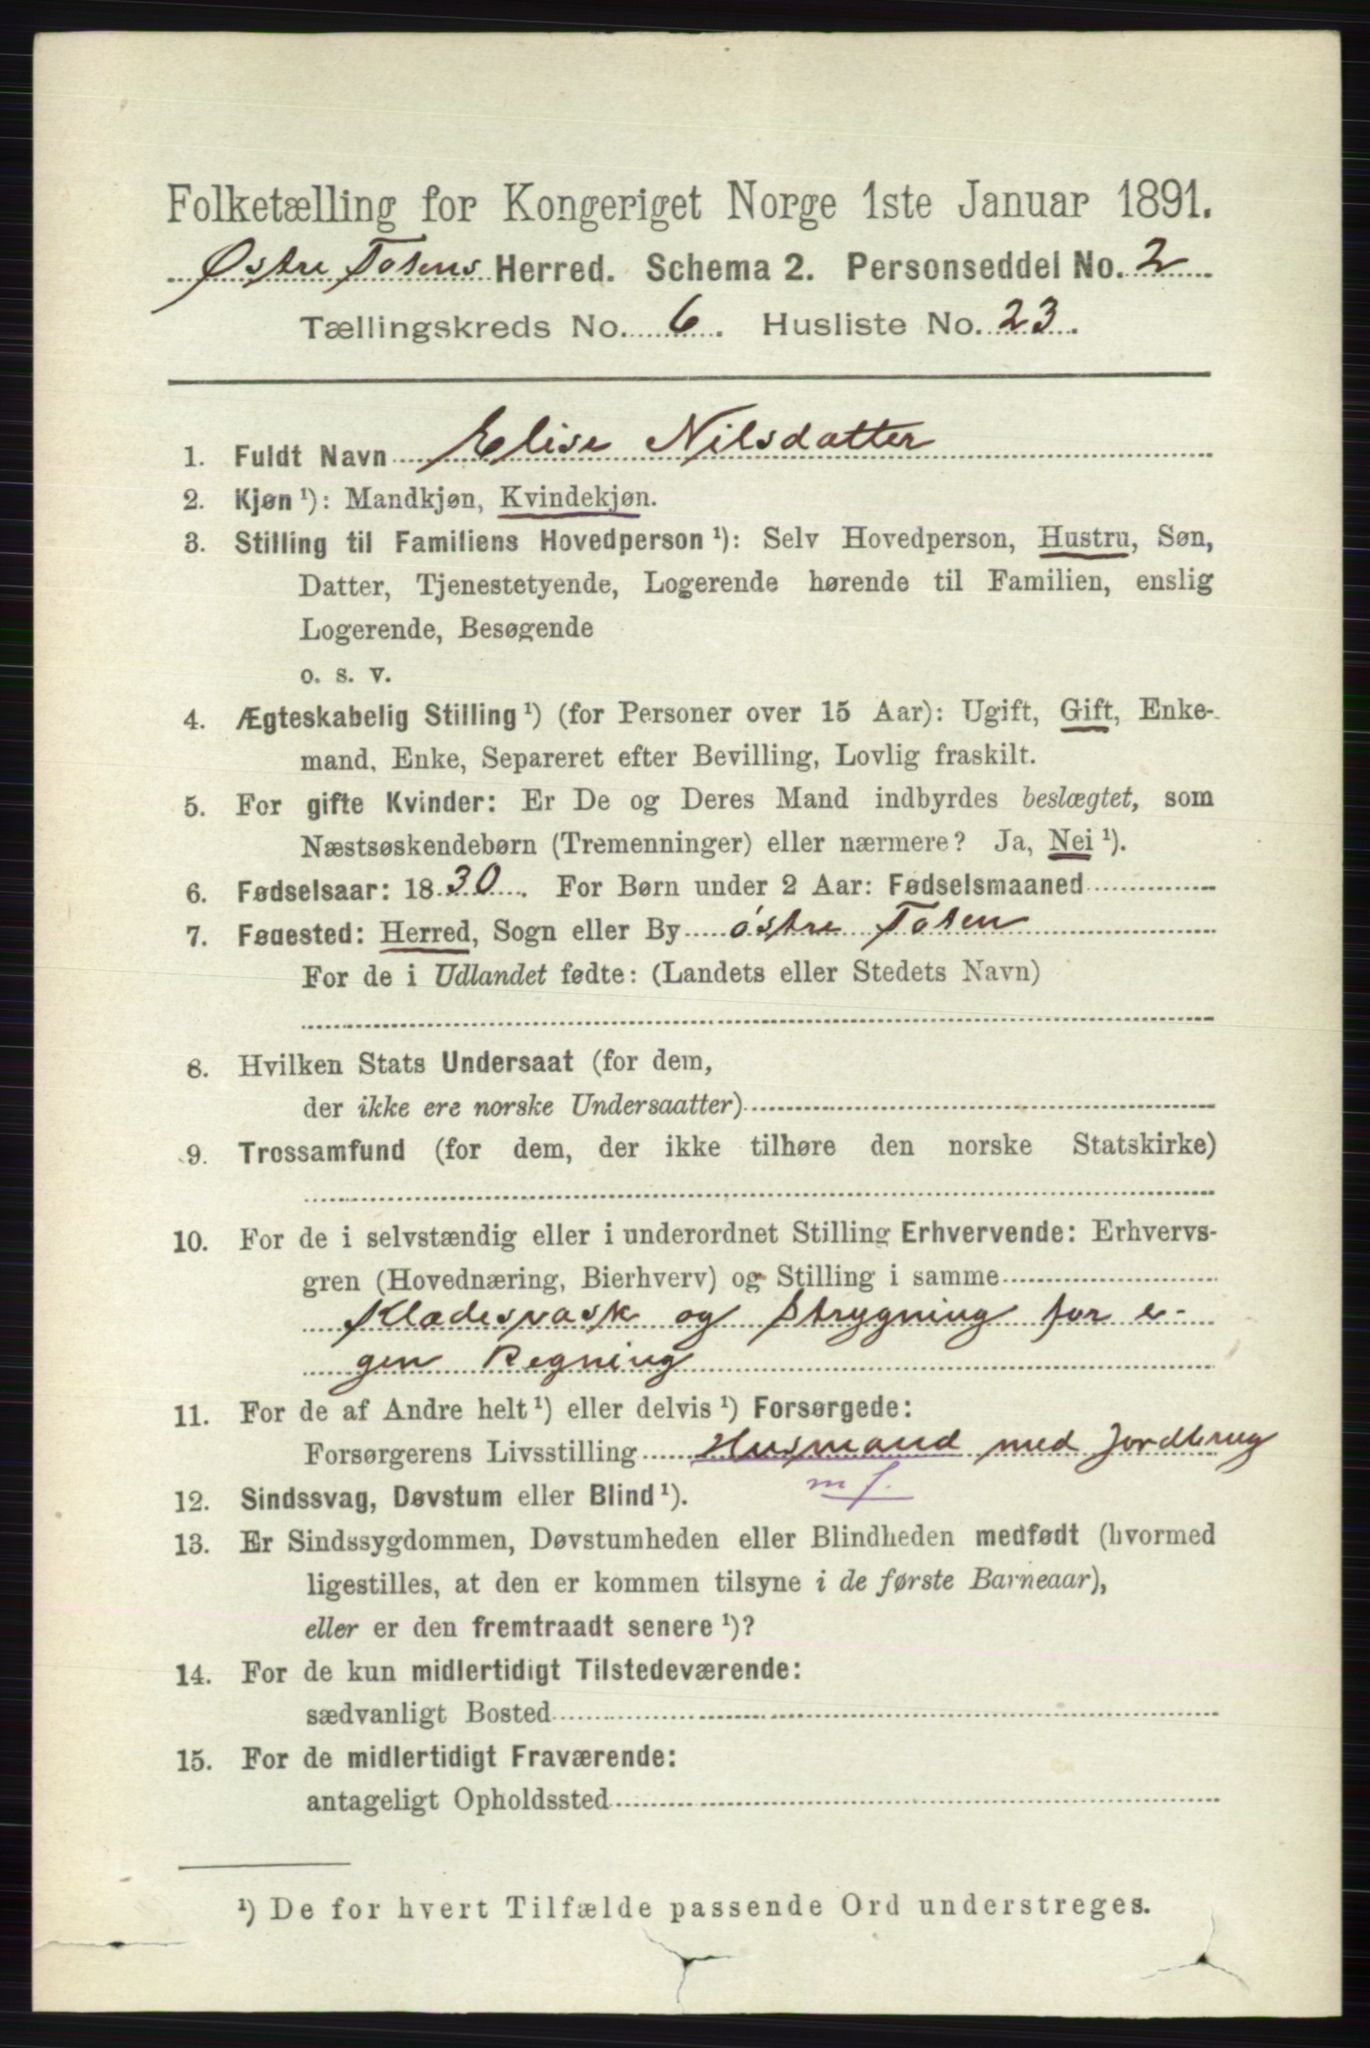 Folketælling for Kongeriget Norge 1ste Januar 1891.
Østre Totens Herred. Schema 2. Personseddel No. 2
Tællingskreds No. 6. Husliste No. 23.
1. Fuldt Navn Elise Nilsdatter
2. Kjøn ¹): Mandkjøn, Kvindekjøn.
3. Stilling til Familiens Hovedperson ¹): Selv Hovedperson, Hustru, Søn,
Datter, Tjenestetyende, Logerende hørende til Familien, enslig
Logerende, Besøgende
o. s. v.
4. Ægteskabelig Stilling ¹) (for Personer over 15 Aar): Ugift, Gift, Enke-
mand, Enke, Separeret efter Bevilling, Lovlig fraskilt.
5. For gifte Kvinder: Er De og Deres Mand indbyrdes beslægtet, som
Næstsøskendebørn (Tremenninger) eller nærmere? Ja, Nei ¹).
6. Fødselsaar: 1830. For Børn under 2 Aar: Fødselsmaaned
7. Fødested: Herred, Sogn eller By østre Toten
For de i Udlandet fødte: (Landets eller Stedets Navn)
8. Hvilken Stats Undersaat (for dem,
der ikke ere norske Undersaatter)
9. Trossamfund (for dem, der ikke tilhøre den norske Statskirke)
10. For de i selvstændig eller i underordnet Stilling Erhvervende: Erhvervs-
gren (Hovednæring, Bierhverv) og Stilling i samme
Klædesvask og Strygning for e-
gen Regning
11. For de af Andre helt ¹) eller delvis ¹) Forsørgede:
Forsørgerens Livsstilling Husmand med Jordbrug
m f.
12. Sindssvag, Døvstum eller Blind ¹).
13. Er Sindssygdommen, Døvstumheden eller Blindheden medfødt (hvormed
ligestilles, at den er kommen tilsyne i de første Barneaar),
eller er den fremtraadt senere ¹)?
14. For de kun midlertidigt Tilstedeværende:
sædvanligt Bosted
15. For de midlertidigt Fraværende:
antageligt Opholdssted
¹) De for hvert Tilfælde passende Ord understreges.